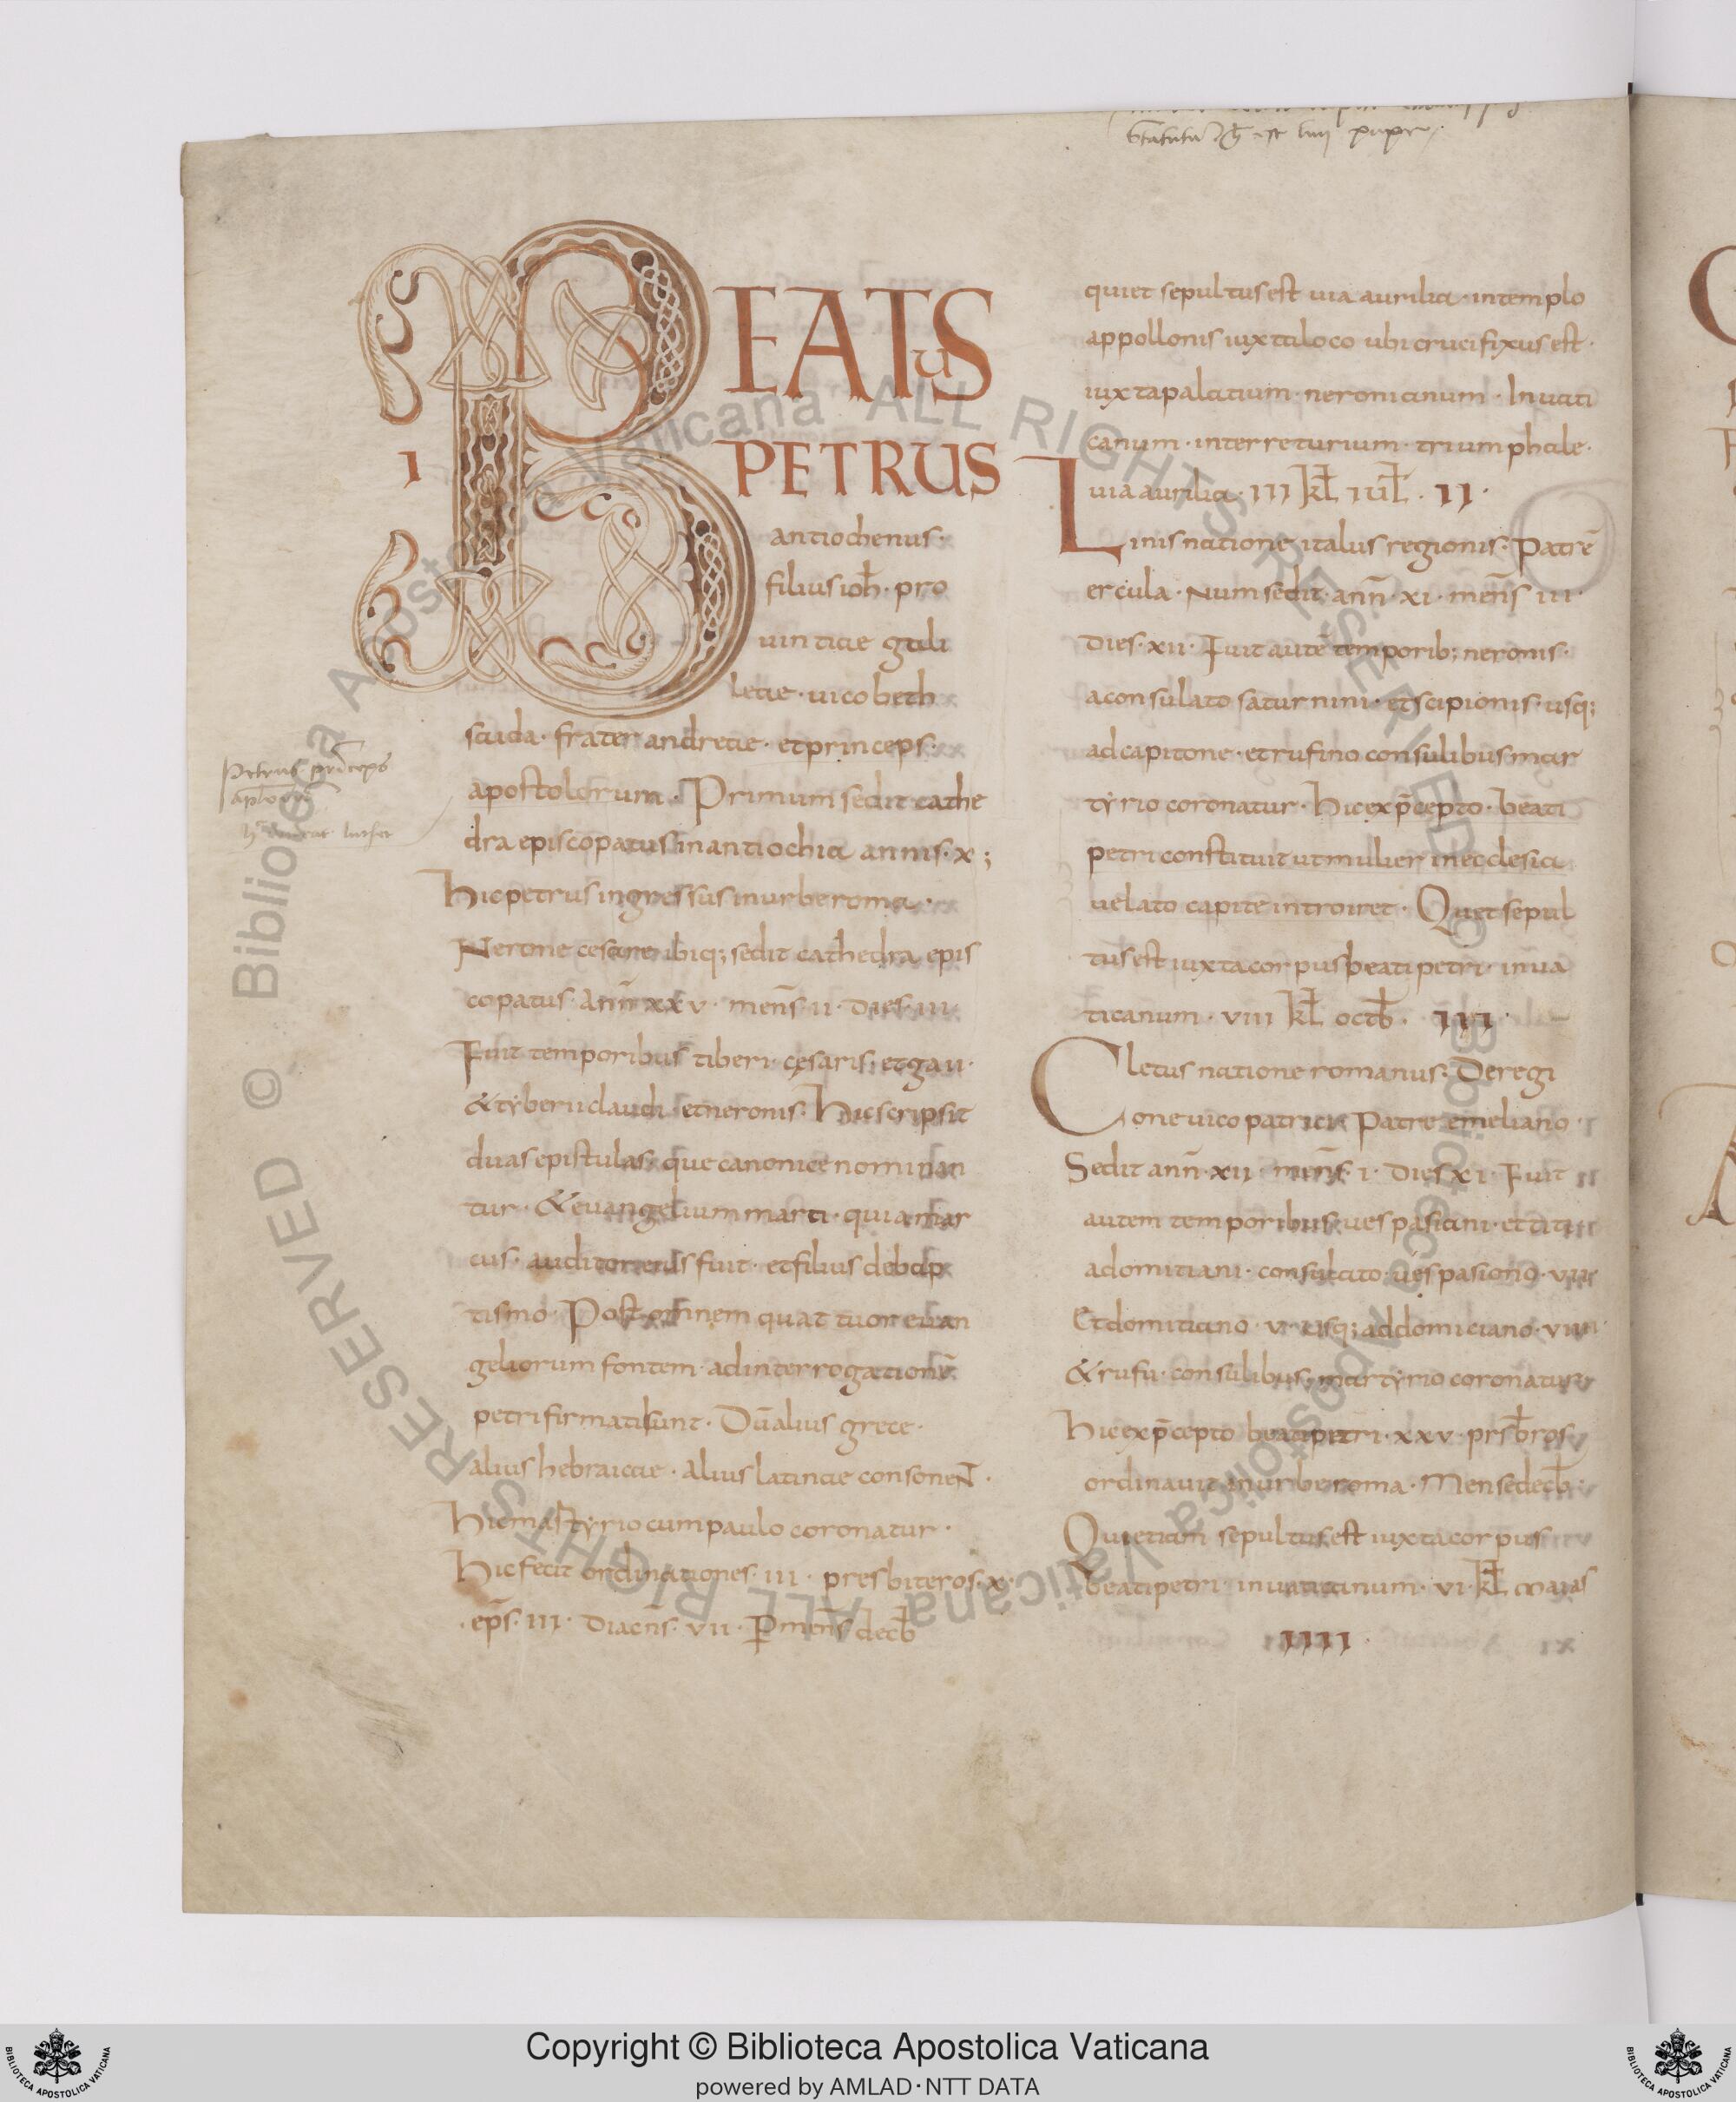 Statutū
BEATUS
I
PETRUS
antiochenus·
filius ioħ· pro
uintiae gali
leae· uico beth
saida· frater andreae· et princeps·
apostolorum· Primum sedit cathe
dra episcopatus in antiochia annis· x;
Hic petrus ingressus in urbe roma·
Nerone cesare ibiq; sedit cathedra epis
copatus· ann̄ xxv· mens̄ ii· dies· iii
Fuit temporibus tiberi· cęsaris· et gaii·
& tyberii claudi· et neronis· Hic scripsit
duas epistulas· que canonice nominan
tur· & euangelium marci· quia mar
cus· auditor eius fuit· et filius de bap
tismo· Post omnem quattuor euan
geliorum fontem· ad interrogationē
petri firmati sunt· Dū alius grece·
alius hebraicae· alius latinae consoneNT·
Hic mastyrio cum paulo coronatur·
Hic fecit ordinationes· iii· presbiteros· x·
· ep̄s· iii· diacn̄s· vii· P mens̄ decb̄
Petrus princeps
apl̄orū
qui et sepultus est uia aurilia· in templo
appollonis iuxta loco ubi crucifixus est·
iuxta palatium· neronianum· In uati
canum· in terreturium· triumphale·
uia aurilia· iii kl̄ iul̄· II·
Linis natione italus regionis· Patrē
ercula· Num sedit· ann̄· xi· mens̄ iii·
dies· xii· Fuit autē temporib; neronis·
a consulato saturnini· et scipionis· usq;
ad capitone· et rufino consulibus mar
tyrio coronatur· Hic ex p̄cepto· beati
petri constituit ut mulier in ecclesia
uelato capite introiret· Qui et sepul
tus est iuxta corpus beati petri· in ua
ticanum· viii kl̄ octb̄· III·
Cletus natione romanus· De regi
one uico patrici· Patre emeliano·
Sedit ann̄· xii· mens̄· i· dies xi· Fuit
autem temporibus· uespasiani· et titi
a domitiani· consulato· uespasiano· vii
Et domitiano· v· usq; ad domiciano· viiii·
& rufu· consulibus; martyrio coronatur
Hic ex p̄cepto beati petri· xxv· prsb̄ros·
ordinauit in urbe roma· Mense decb̄·
Qui etiam sepultus est iuxta corpus
beati petri· in uaticanum· vi· kl̄ maias
IIII·
© Biblioteca Apostolica Vaticana ALL RIGHTS RESERVED
© Biblioteca Apostolica Vaticana ALL RIGHTS RESERVED
Copyright © Biblioteca Apostolica Vaticana
powered by AMLAD·NTT DATA
BIBLIOTECA APOSTOLICA VATICANA
BIBLIOTECA APOSTOLICA VATICANA